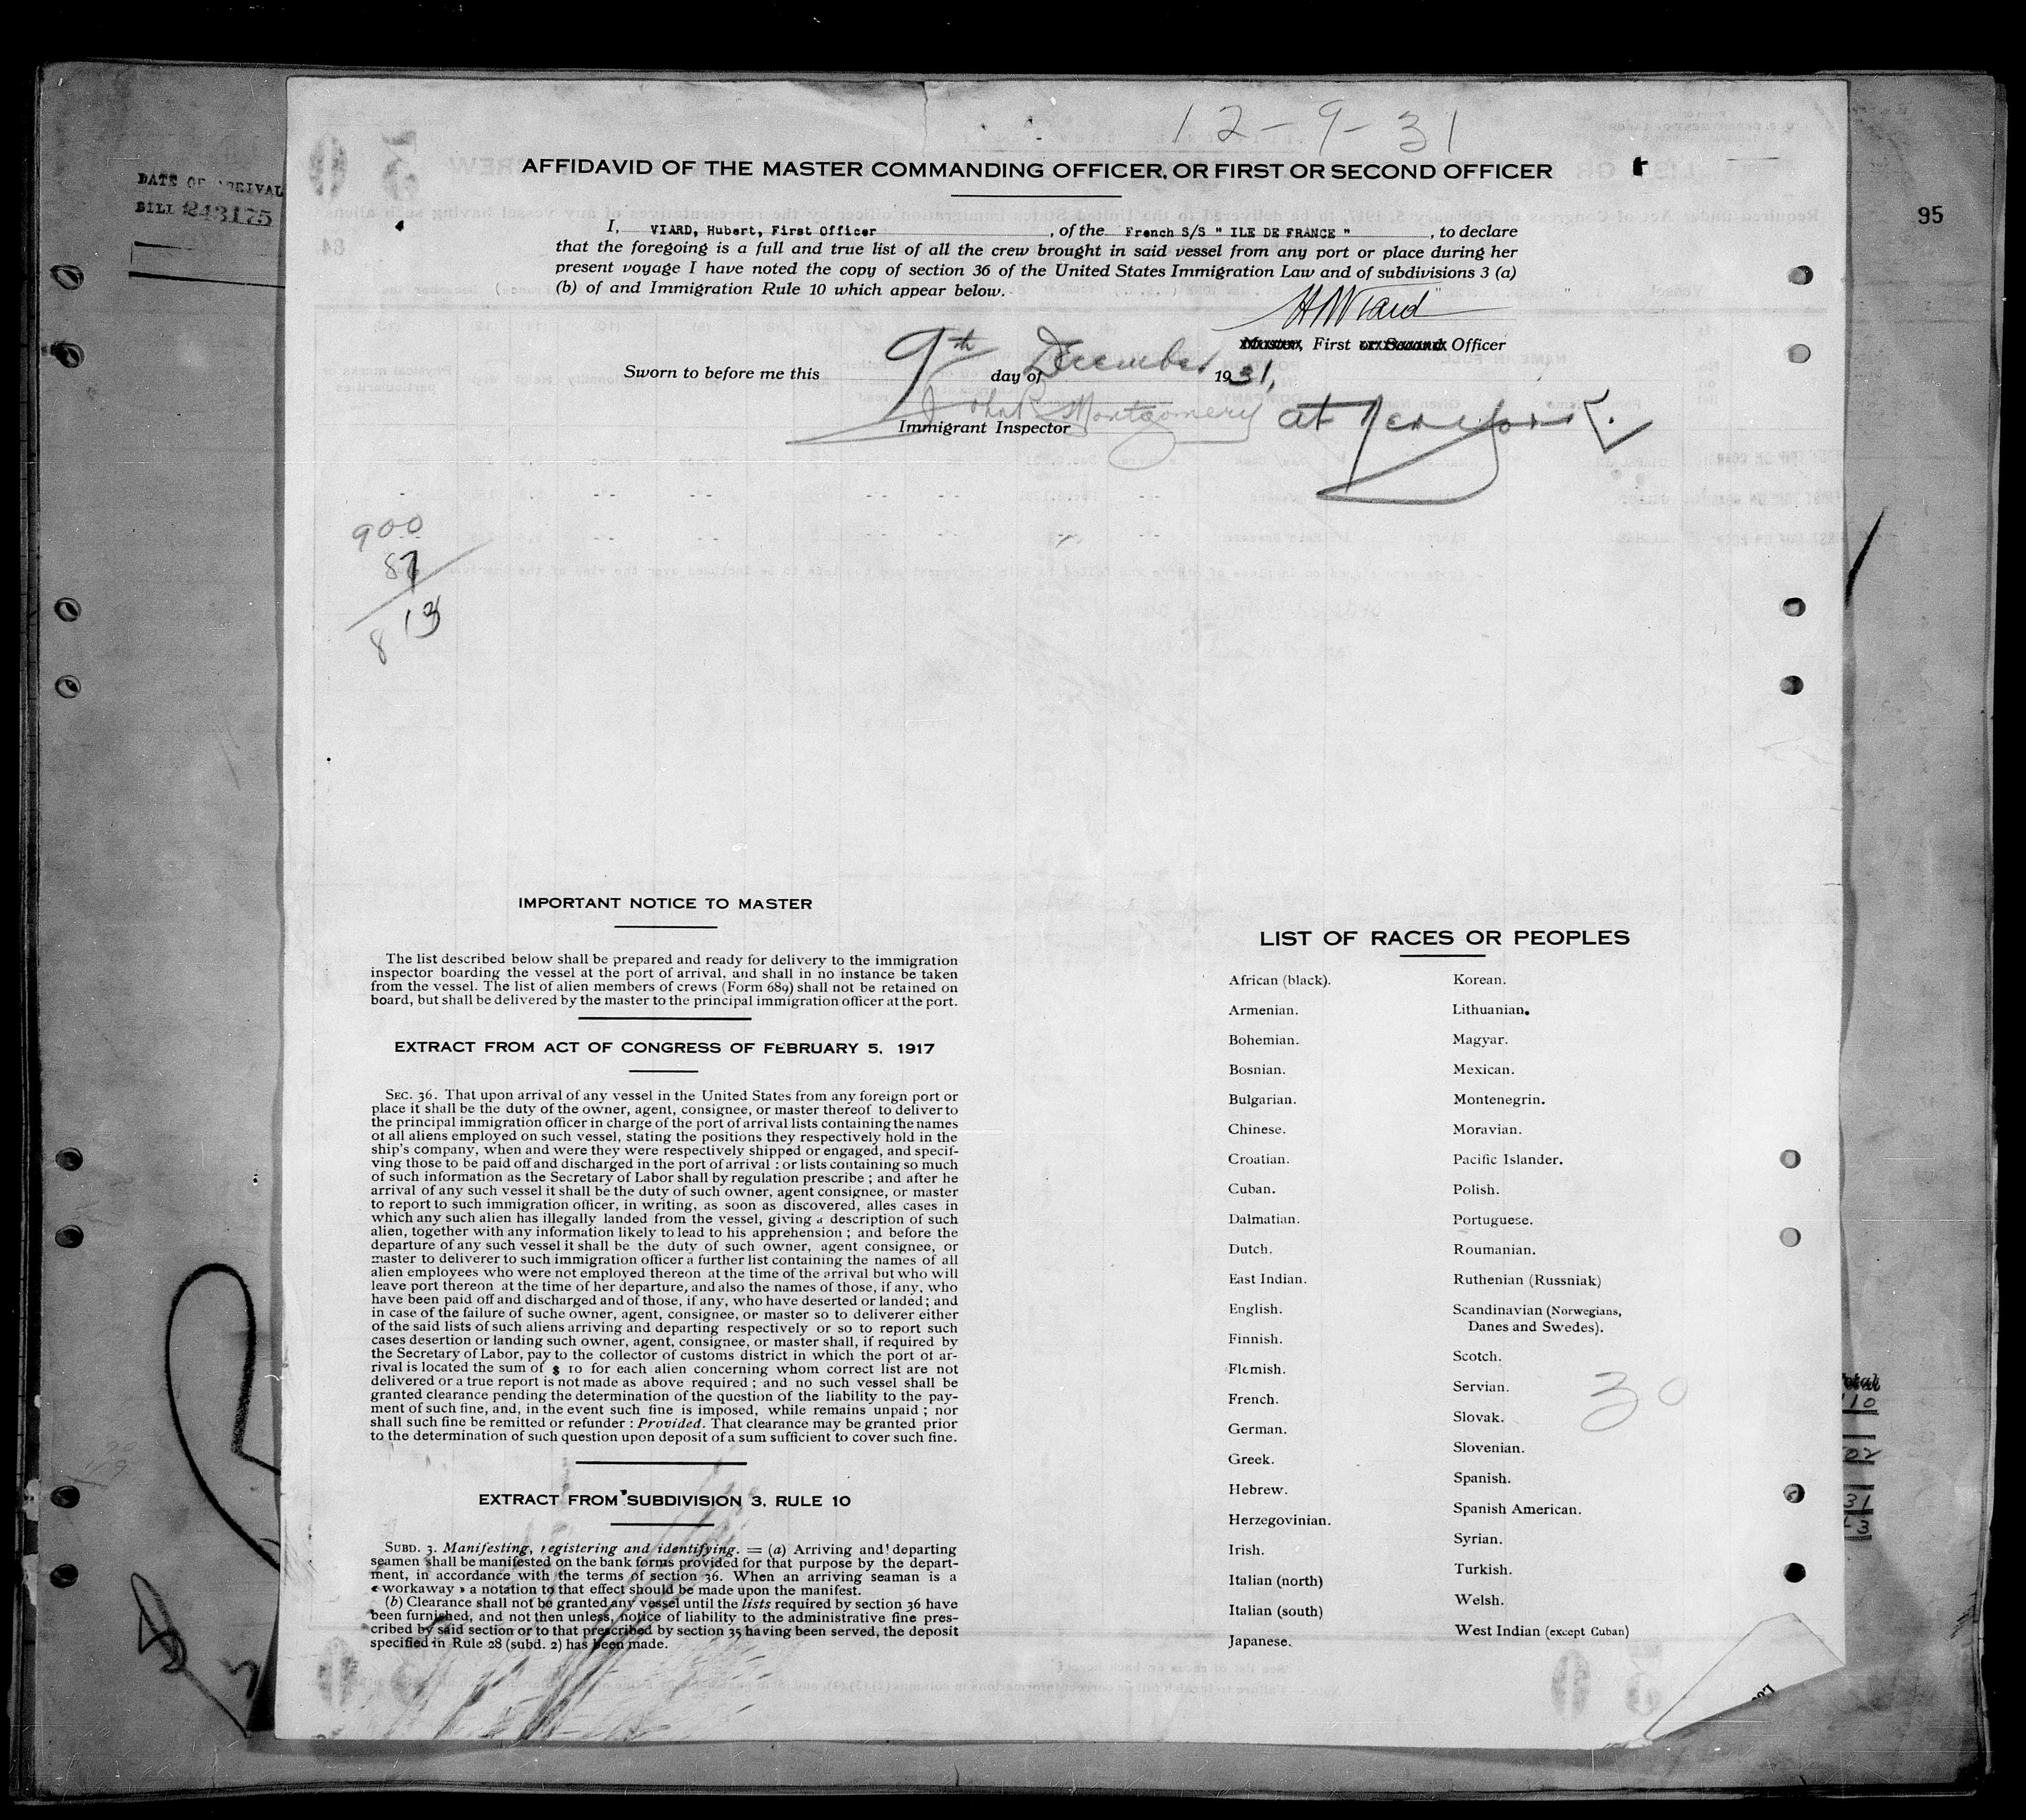 12-9-31
AFFIDAVID OF THE MASTER COMMANDING OFFICER, OR FIRST OR SECOND OFFICER
DATE OF ARRIVAL
BILL
243175
95
I, VIARD, Hubert, First Officer, of the French S/S " ILE DE FRANCE ", to declare
that the foregoing is a full and true list of all the crew brought in said vessel from any port or place during her
present voyage I have noted the copy of section 36 of the United States Immigration Law and of subdivisions 3 (a)
(b) of and Immigration Rule 10 which appear below.
HViard
Master, First or Second Officer
Sworn to before me this 9th day of December 1931,
John R Montgomery at New York.
Immigrant Inspector
900
87
813
IMPORTANT NOTICE TO MASTER
The list described below shall be prepared and ready for delivery to the immigration
inspector boarding the vessel at the port of arrival, and shall in no instance be taken
from the vessel. The list of alien members of crews (Form 689) shall not be retained on
board, but shall be delivered by the master to the principal immigration officer at the port.
EXTRACT FROM ACT OF CONGRESS OF FEBRUARY 5, 1917
SEC. 36. That upon arrival of any vessel in the United States from any foreign port or
place it shall be the duty of the owner, agent, consignee, or master thereof to deliver to
the principal immigration officer in charge of the port of arrival lists containing the names
of all aliens employed on such vessel, stating the positions they respectively hold in the
ship's company, when and were they were respectively shipped or engaged, and specif-
ving those to be paid off and discharged in the port of arrival : or lists containing so much
of such information as the Secretary of Labor shall by regulation prescribe ; and after he
arrival of any such vessel it shall be the duty of such owner, agent consignee, or master
to report to such immigration officer, in writing, as soon as discovered, alles cases in
which any such alien has illegally landed from the vessel, giving a description of such
alien, together with any information likely to lead to his apprehension ; and before the
departure of any such vessel it shall be the duty of such owner, agent consignee, or
master to deliverer to such immigration officer a further list containing the names of all
alien employees who were not employed thereon at the time of the arrival but who will
leave port thereon at the time of her departure, and also the names of those, if any, who
have been paid off and discharged and of those, if any, who have deserted or landed ; and
in case of the failure of suche owner, agent, consignee, or master so to deliverer either
of the said lists of such aliens arriving and departing respectively or so to report such
cases desertion or landing such owner, agent, consignee, or master shall, if required by
the Secretary of Labor, pay to the collector of customs district in which the port of ar-
rival is located the sum of $ 10 for each alien concerning whom correct list are not
delivered or a true report is not made as above required ; and no such vessel shall be
granted clearance pending the determination of the question of the liability to the pay-
ment of such fine, and, in the event such fine is imposed, while remains unpaid ; nor
shall such fine be remitted or refunder : Provided. That clearance may be granted prior
to the determination of such question upon deposit of a sum sufficient to cover such fine.
EXTRACT FROM SUBDIVISION 3, RULE 10
SUBD. 3. Manifesting, registering and identifying. = (a) Arriving and! departing
seamen shall be manifested on the bank forms provided for that purpose by the depart-
ment, in accordance with the terms of section 36. When an arriving seaman is a
« workaway » a notation to that effect should be made upon the manifest.
(b) Clearance shall not be granted any vessel until the lists required by section 36 have
been furnished, and not then unless, notice of liability to the administrative fine pres-
cribed by said section or to that prescribed by section 35 having been served, the deposit
specified in Rule 28 (subd. 2) has been made.
LIST OF RACES OR PEOPLES
African (black).
Armenian.
Bohemian.
Bosnian.
Bulgarian.
Chinese.
Croatian.
Cuban.
Dalmatian.
Dutch.
East Indian.
English.
Finnish.
Flemish.
French.
German.
Greek.
Hebrew.
Herzegovinian.
Irish.
Italian (north)
Italian (south)
Japanese.
Korean.
Lithuanian.
Magyar.
Mexican.
Montenegrin.
Moravian.
Pacific Islander.
Polish.
Portuguese.
Roumanian.
Ruthenian (Russniak)
Scandinavian (Norwegians,
Danes and Swedes).
Scotch.
Servian.
Slovak.
Slovenian.
Spanish.
Spanish American.
Syrian.
Turkish.
Welsh.
West Indian (except Cuban)
30